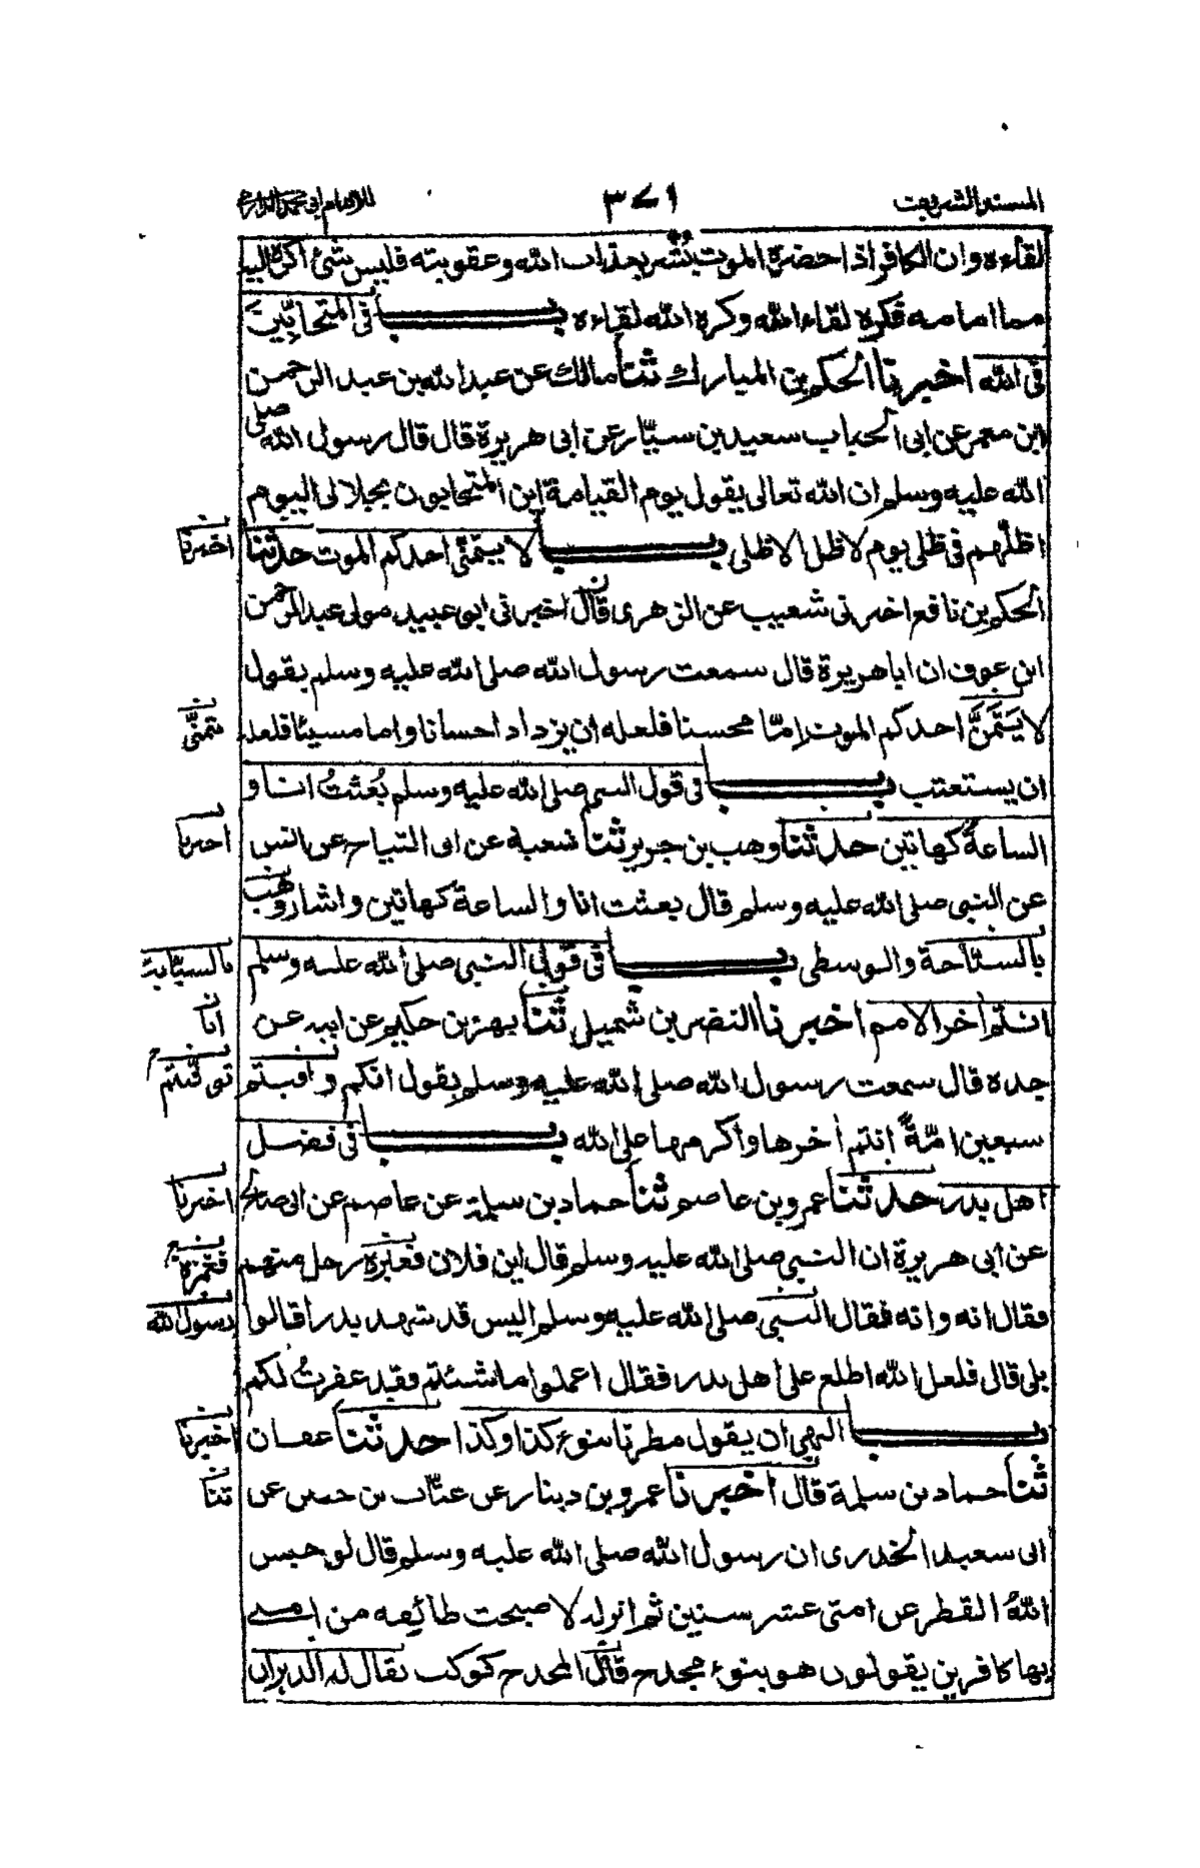 المسند الشريف
٣٧١
للامام ابى محمد الدارمى
لقاءه وان الكافر اذا حضره الموت بُشّر بعذاب الله وعقوبته فليس شئ اكره اليه
مما امامه فكره لقاء الله وكره الله لقاءه باب فى المتحابّين
فى الله اخبرنا الحكم بن المبارك ثنا مالك عن عبد الله بن عبد الرحمن
ابن معمر عن ابى الحباب سعيد بن سيّار عن ابى هريرة قال قال رسول الله صلى
الله عليه وسلم ان الله تعالى يقول يوم القيامة اين المتحابون بجلالى اليوم
اظلّهم فى ظلى يوم لا ظل الا ظلى باب لا يتمنّى احدكم الموت حدثنا
اخبرنا
الحكم بن نافع اخبرنى شعيب عن الزهرى قال اخبرنى ابو عبيد مولى عبد الرحمن
ابن عوف ان ابا هريرة قال سمعت رسول الله صلى الله عليه وسلم يقول
لا يَتَمَنَّ احدكم الموت إمّا محسنا فلعله ان يزداد احسانا واما مسيئا فلعله
يتمنّى
ان يستعتب باب فى قول النبى صلى الله عليه وسلم بُعثتُ انا و
الساعةُ كهاتين حدثنا وهب بن جرير ثنا شعبة عن ابى التياح عن انس
اخبرنا
عن النبى صلى الله عليه وسلم قال بعثت انا والساعة كهاتين واشار وهب
بالسبّاحة والوسطى باب فى قول النبى صلى الله عليه وسلم
بالسبّابة
انتم اٰخر الامم اخبرنا النضر بن شميل ثنا بهز بن حكيم عن ابيه عن
انا
جده قال سمعت رسول الله صلى الله عليه وسلم يقول انكم وافيتم
توفّيتم
سبعين امّةً انتم اٰخرها واكرمها على الله باب فى فضل
اهل بدر حدثنا عمرو بن عاصم ثنا حماد بن سلمة عن عاصم عن ابى صالح
اخبرنا
عن ابى هريرة ان النبى صلى الله عليه وسلم قال اين فلان فعبّره رجل منهم
فغمزه
فقال انه وانه فقال النبى صلى الله عليه وسلم اليس قد شهد بدرا قالوا
رسول الله
بلى قال فلعل الله اطلع على اهل بدر فقال اعملوا ما شئتم فقد غفرتُ لكم
باب النهى ان يقول مطرنا بنوء كذا وكذا حدثنا عفان
اخبرنا
ثنا حماد بن سلمة قال اخبرنا عمرو بن دينار عن عتّاب بن حنين عن
ثنا
ابى سعيد الخدرى ان رسول الله صلى الله عليه وسلم قال لو حبس
اللهُ القطر عن امتى عشر سنين ثم انزله لاصبحت طائفة من امتى
بها كافرين يقولون هو بنوء مجدح قال المجدح كوكب يقال له الدبران